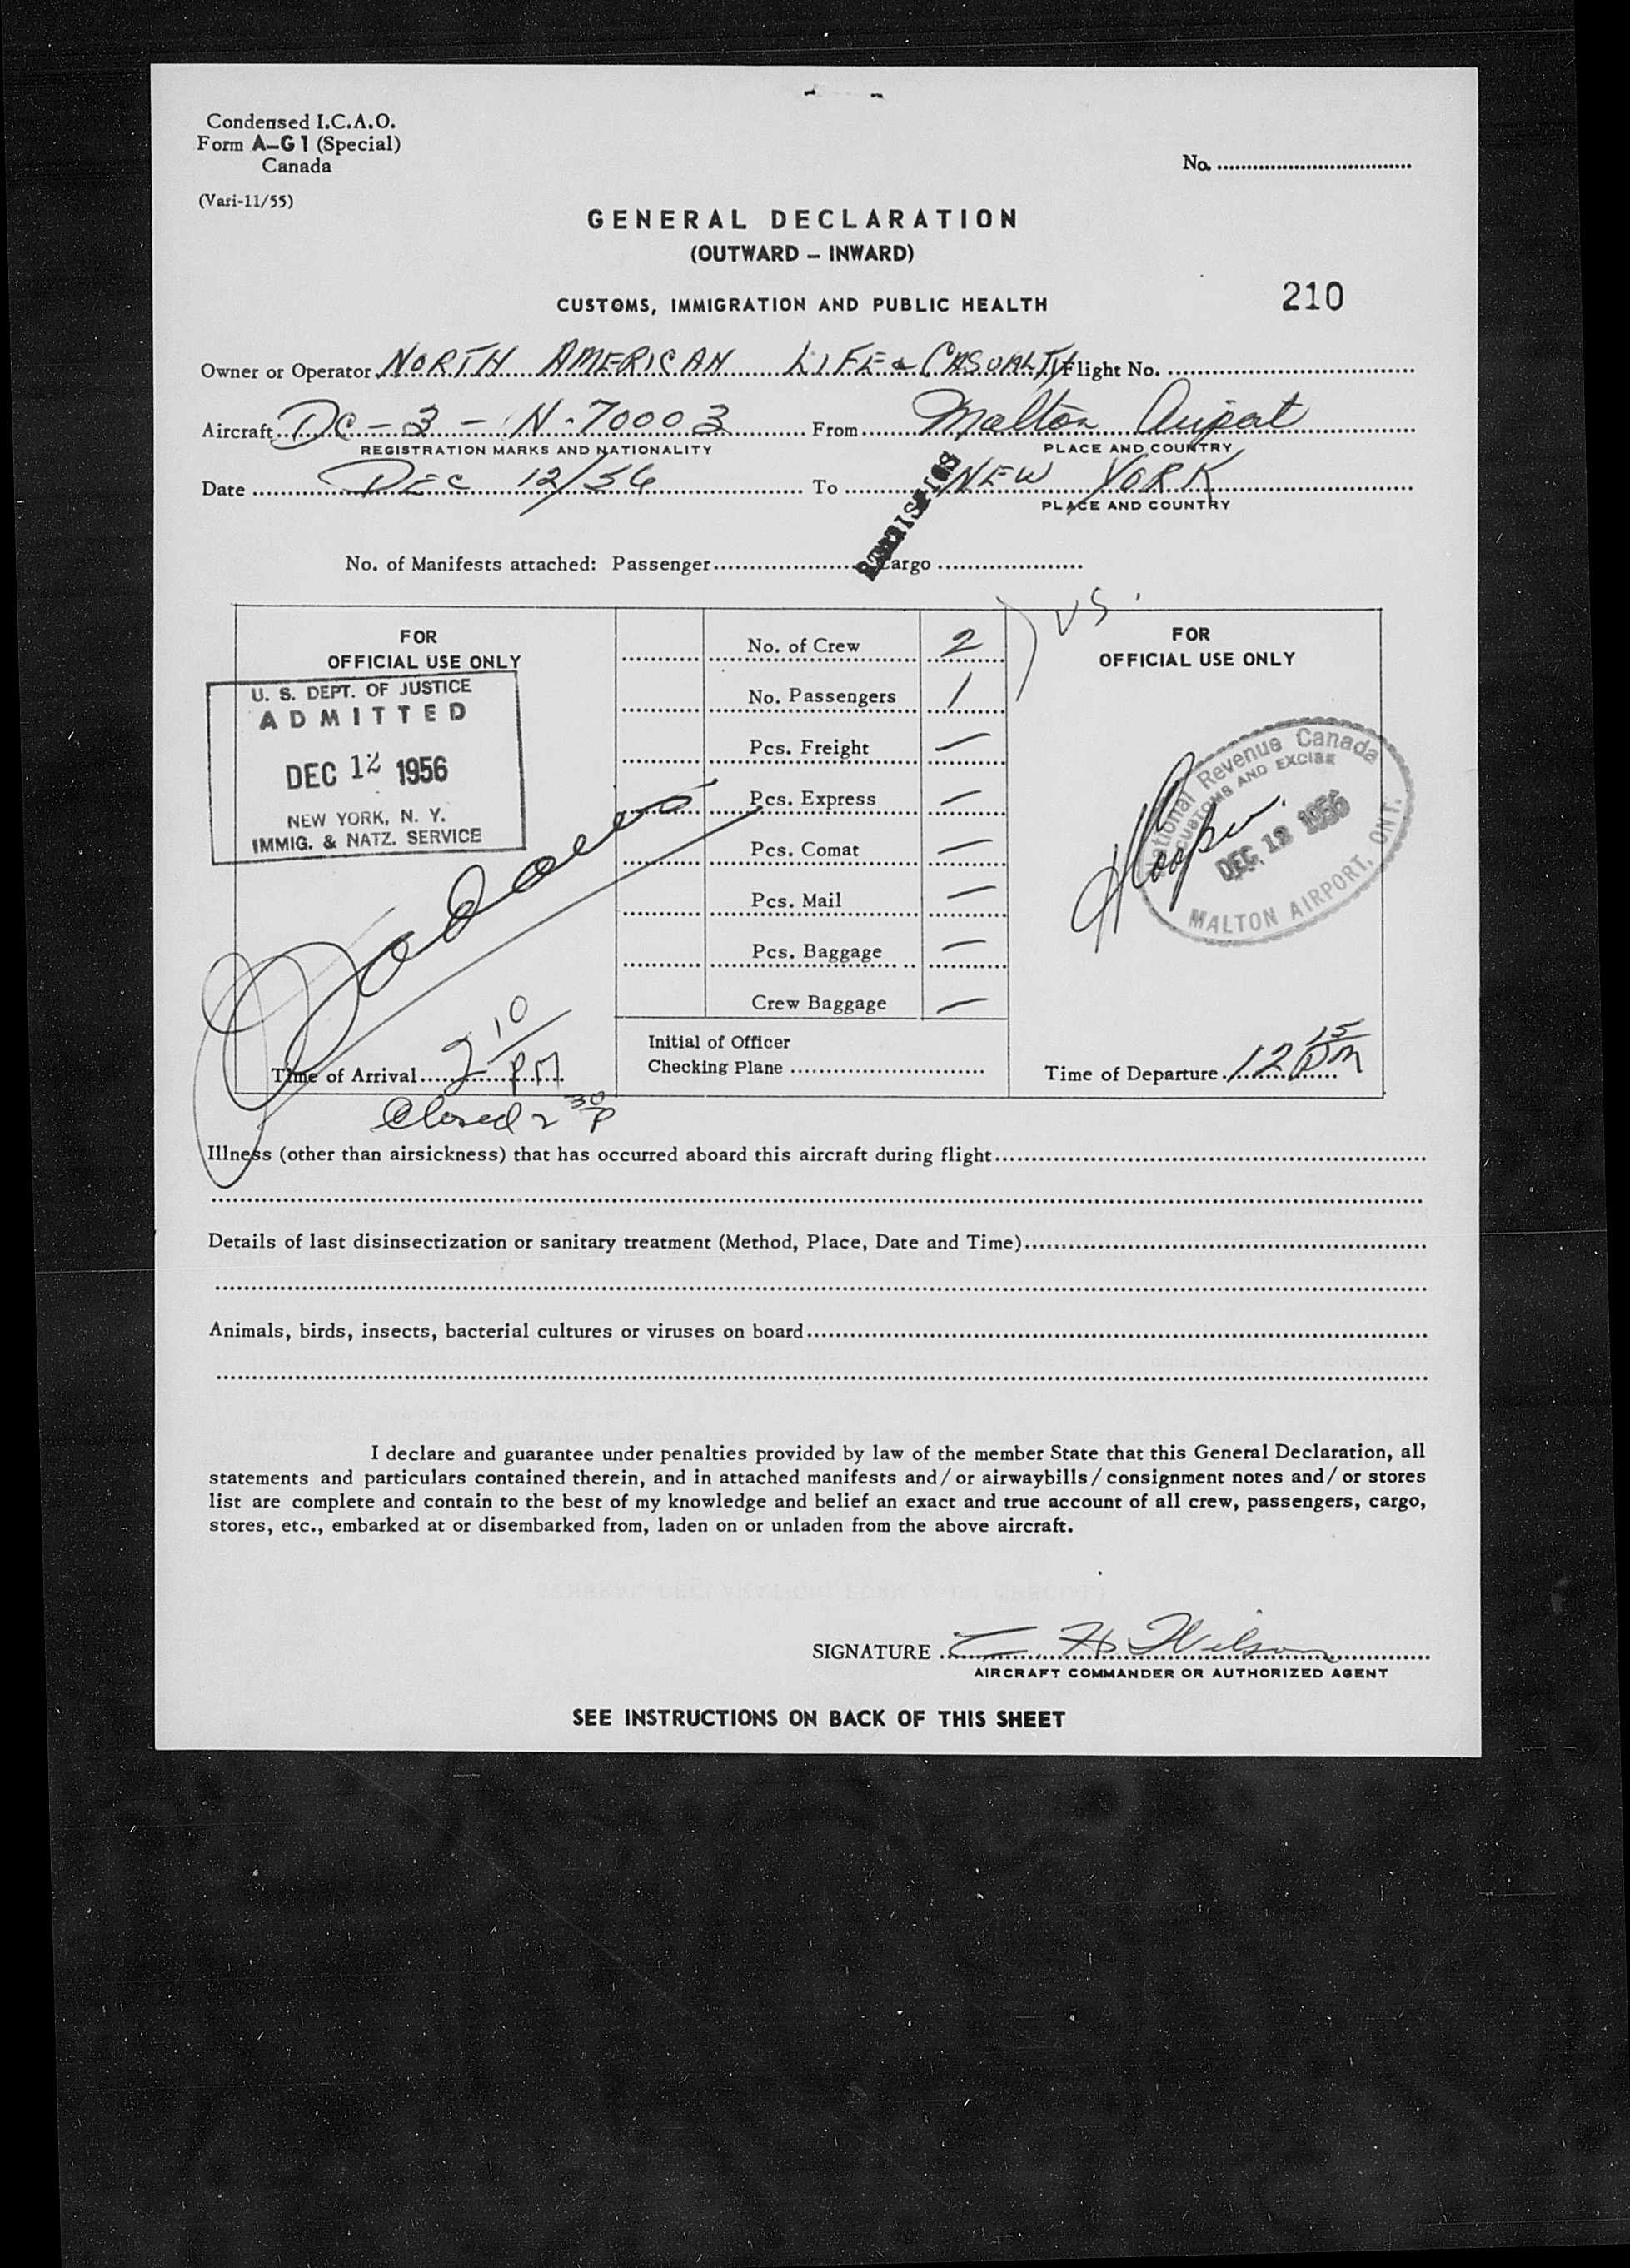 Condensed I.C.A.O.
Form A-G1 (Special)
Canada
(Vari-11/55)
No. ..................................
GENERAL DECLARATION
(OUTWARD – INWARD)
CUSTOMS, IMMIGRATION AND PUBLIC HEALTH
210
Owner or Operator NORTH AMERICAN LIFE & CASUALTY Flight No. ..................................
Aircraft DC-3 - N-70003 From Malton Airport
REGISTRATION MARKS AND NATIONALITY PLACE AND COUNTRY
Date DEC 12/56 To NEW YORK
PLACE AND COUNTRY
No. of Manifests attached: Passenger.................... Cargo ....................
US.
FOR
OFFICIAL USE ONLY
U. S. DEPT. OF JUSTICE
ADMITTED
DEC 12 1956
NEW YORK, N. Y.
IMMIG. & NATZ. SERVICE
Time of Arrival 2 10 PM
Closed 2 30 P
No. of Crew 2
No. Passengers 1
Pcs. Freight —
Pcs. Express —
Pcs. Comat —
Pcs. Mail —
Pcs. Baggage —
Crew Baggage —
Initial of Officer
Checking Plane ..................................
FOR
OFFICIAL USE ONLY
National Revenue Canada
CUSTOMS AND EXCISE
DEC. 1956
MALTON AIRPORT, ONT.
Time of Departure 12 15 PM
Illness (other than airsickness) that has occurred aboard this aircraft during flight..................................
Details of last disinsectization or sanitary treatment (Method, Place, Date and Time)..................................
Animals, birds, insects, bacterial cultures or viruses on board..................................
I declare and guarantee under penalties provided by law of the member State that this General Declaration, all
statements and particulars contained therein, and in attached manifests and/or airwaybills/consignment notes and/or stores
list are complete and contain to the best of my knowledge and belief an exact and true account of all crew, passengers, cargo,
stores, etc., embarked at or disembarked from, laden on or unladen from the above aircraft.
SIGNATURE H. Wilson
AIRCRAFT COMMANDER OR AUTHORIZED AGENT
SEE INSTRUCTIONS ON BACK OF THIS SHEET